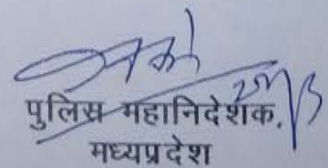 पुलिस महानिदेशक,
मध्यप्रदेश